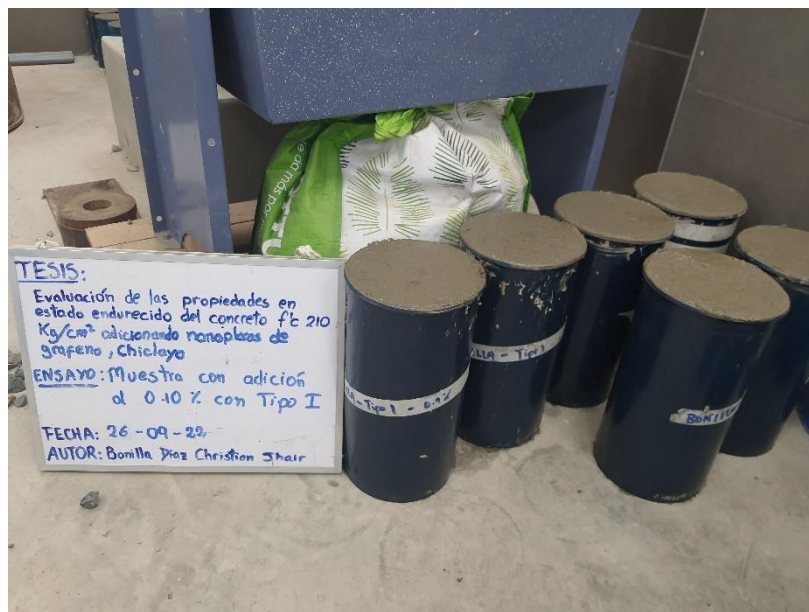 TESIS:
Evaluación de las propiedades en
estado endurecido del concreto f'c 210
Kg/cm² adicionando nanoplacas de
grafeno, Chiclayo
ENSAYO: Muestra con adición
al 0.10 % con Tipo I
FECHA: 26-09-22
AUTOR: Bonilla Diaz Christian Jhair
da más por
Tipo 1
LLA - Tipo 1
BONILLA